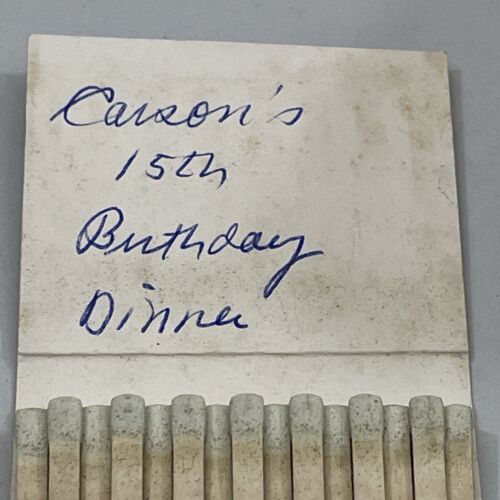 Carson's
15th
Birthday
Dinner